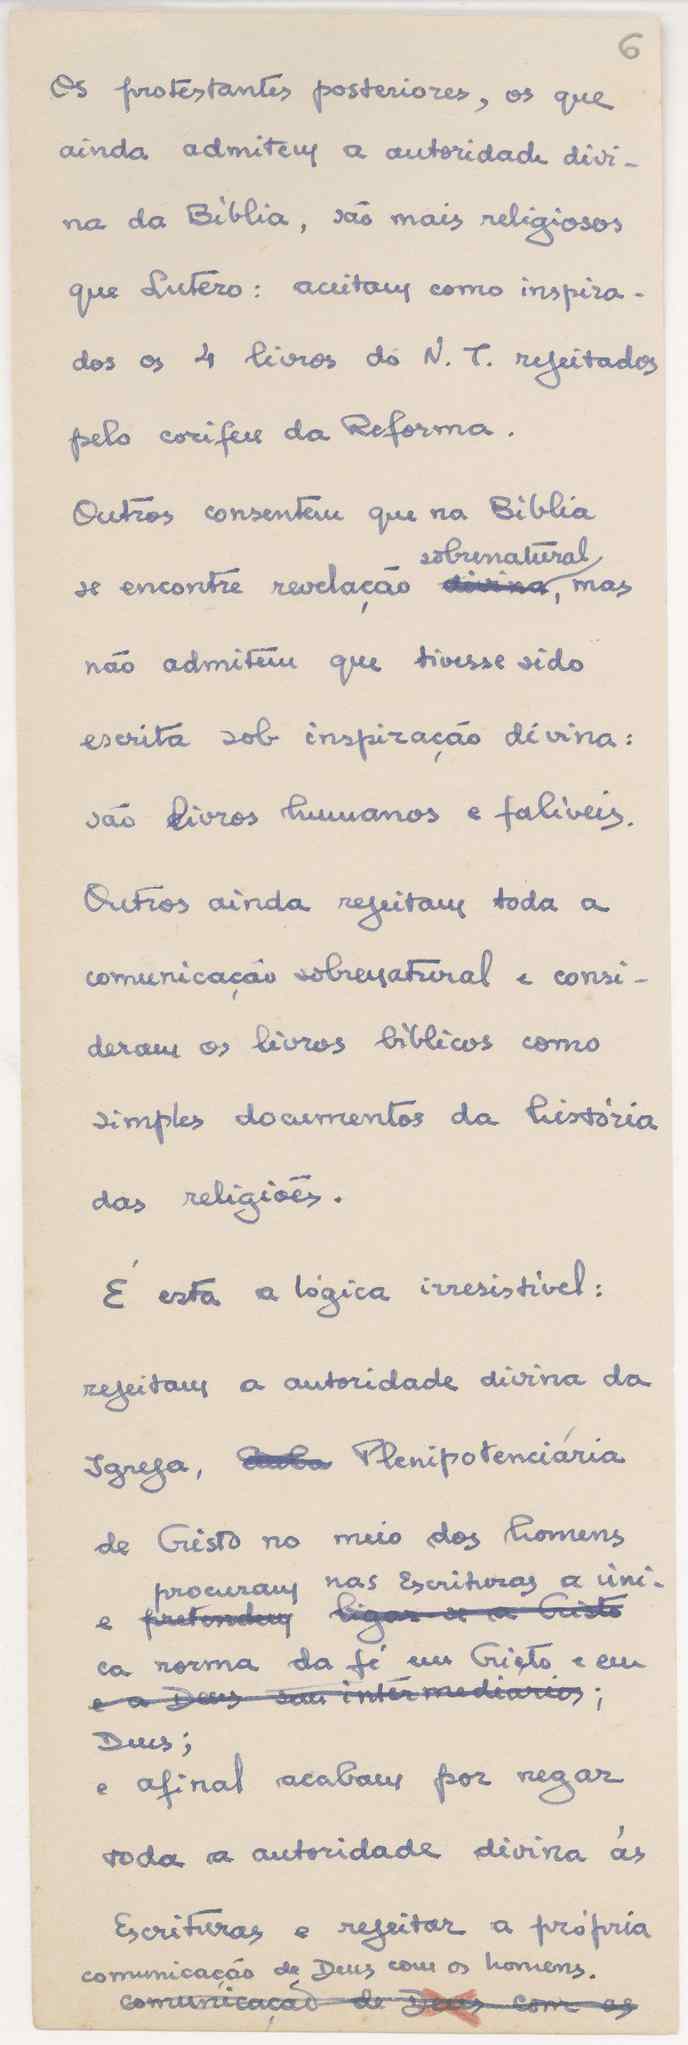 6
Os protestantes posteriores, os que
ainda admitem a autoridade divi-
na da Bíblia, são mais religiosos
que Lutero: aceitam como inspira-
dos os 4 livros do N. T. rejeitados
pelo corifeu da Reforma.
Outros consentem que na Bíblia
sobrenatural
se encontre revelação divina, mas
não admitem que tivesse sido
escrita sob inspiração divina:
são livros humanos e falíveis.
Outros ainda rejeitam toda a
comunicação sobrenatural e consi-
deram os livros bíblicos como
simples documentos da história
das religiões.
É esta a lógica irresistível:
rejeitam a autoridade divina da
Igreja, Plenipotenciária
de Cristo no meio dos homens
procuram nas Escrituras a úni-
e pretendem ligar-se a Cristo
ca norma da fé em Cristo e em
e a Deus sem intermediarios;
Deus;
e afinal acabam por negar
toda a autoridade divina ás
Escrituras e rejeitar a própria
comunicação de Deus com os homens.
comunicação de Deus com os